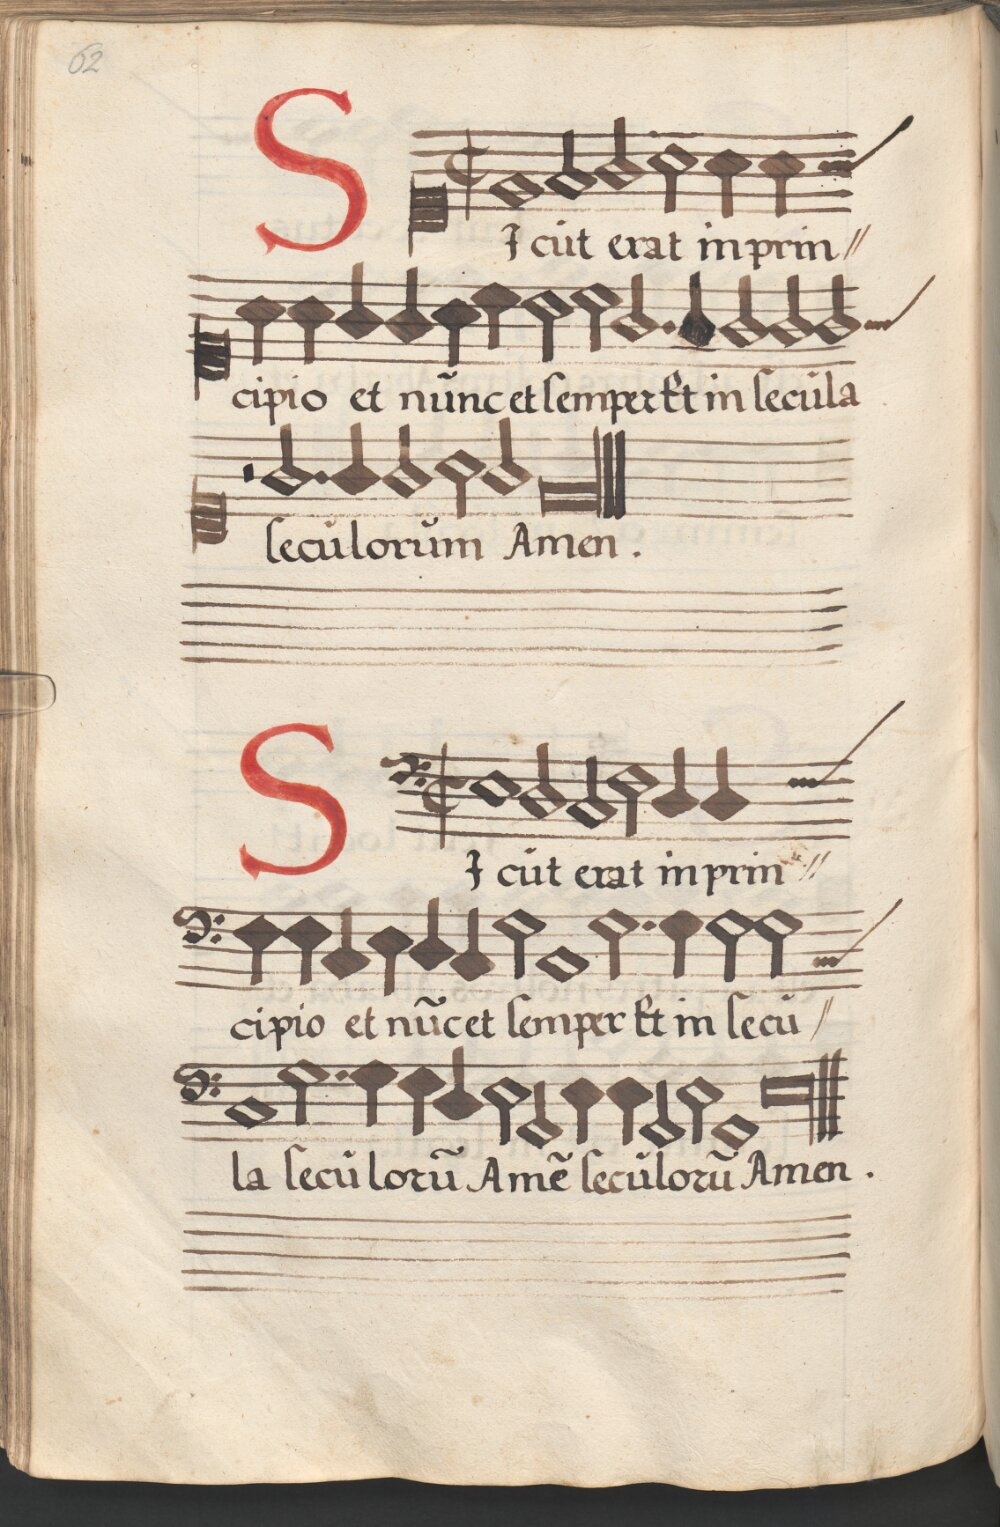 62
SIcut erat in prin//
cipio et nũnc et semper Et in secula
seculorum Amen.
SIcut erat in prin//
cipio et nũc et semper Et in secu/
la seculorũ Amẽ seculorũ Amen.